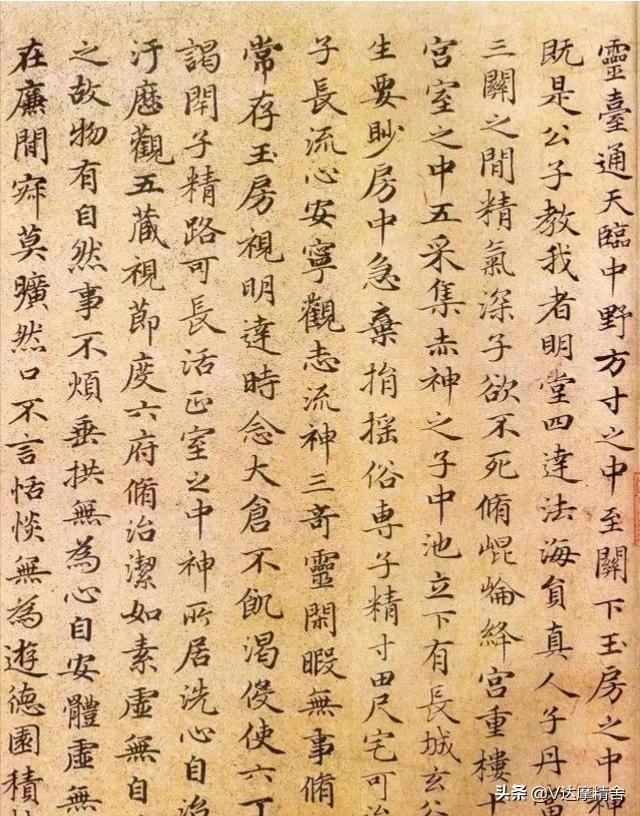 靈臺通天臨中野方寸之中至關下玉房之中神
既是公子教我者明堂四達法海負真人子丹當
三關之間精氣深子欲不死脩崐崘絳宮重樓十
宮室之中五采集赤神之子中池立下有長城玄谷
生要眇房中急棄捐搖俗專子精寸田尺宅可治
子長流心安寧觀志流神三奇靈閑暇無事脩
常存玉房視明達時念大倉不飢渴役使六丁
謁閉子精路可長活正室之中神所居洗心自治
汙歷觀五藏視節度六府脩治潔如素虛無自
之故物有自然事不煩垂拱無為心自安體虛無
在廉間寂莫曠然口不言恬惔無為遊德園積
头条 @V达摩精舍